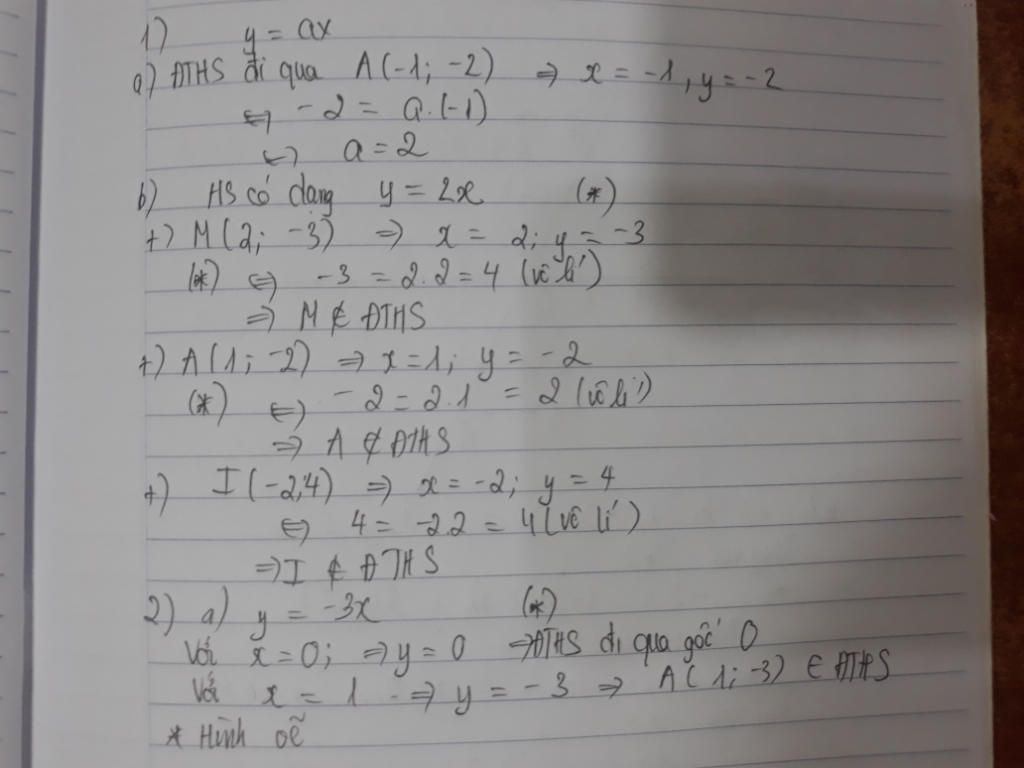 1) y = ax
a) ĐTHS đi qua A(-1; -2) => x = -1, y = -2
<=> -2 = a.(-1)
<=> a = 2
b) HS có dang y = 2x (*)
+) M(2; -3) => x = 2; y = -3
(*) <=> -3 = 2.2 = 4 (vô lí)
=> M ∉ ĐTHS
+) A(1; -2) => x = 1; y = -2
(*) <=> -2 = 2.1 = 2 (vô lí)
=> A ∉ ĐTHS
+) I(-2,4) => x = -2; y = 4
<=> 4 = -2.2 = 4 (vô lí)
=> I ∉ ĐTHS
2) a) y = -3x (*)
Với x = 0; => y = 0 => ĐTHS đi qua gốc O
Với x = 1 => y = -3 => A(1; -3) ∈ ĐTHS
* Hình vẽ